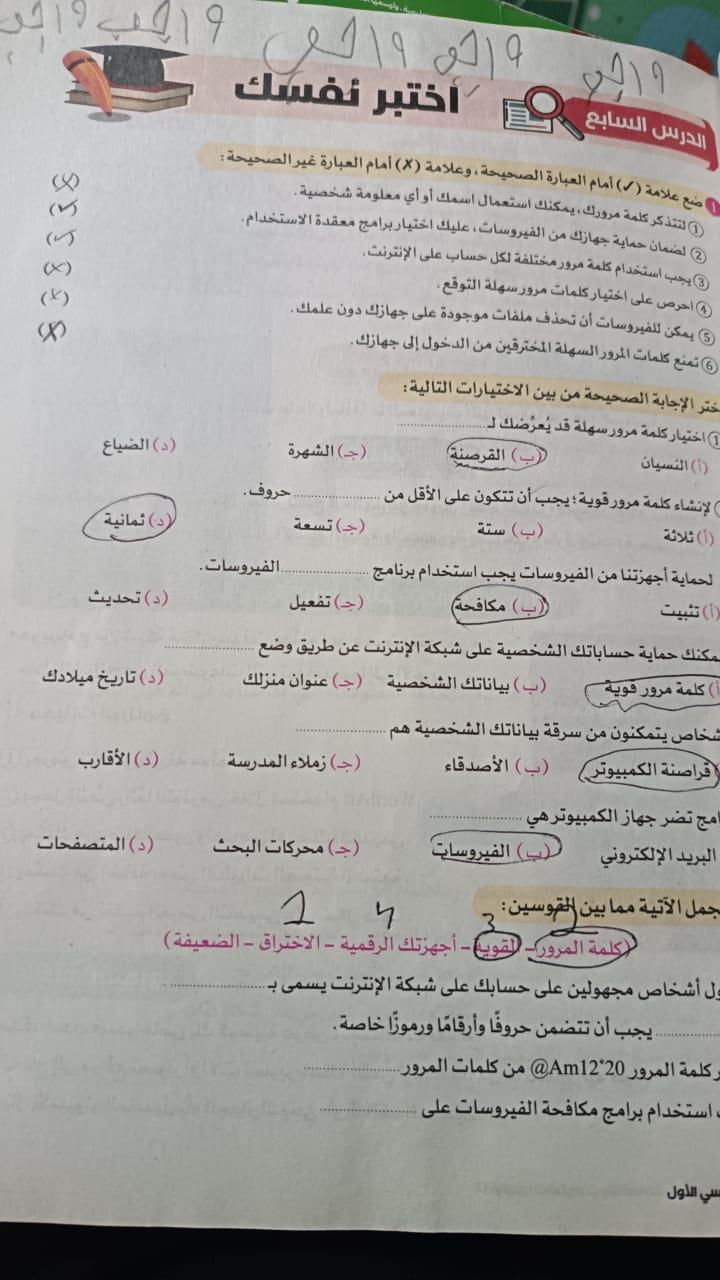 واجب واجب واجب واجب واجب
الدرس السابع
اختبر نفسك
١ ضع علامة (✓) أمام العبارة الصحيحة، وعلامة (✗) أمام العبارة غير الصحيحة:
① لتتذكر كلمة مرورك، يمكنك استعمال اسمك أو أي معلومة شخصية. (✗)
② لضمان حماية جهازك من الفيروسات، عليك اختيار برامج معقدة الاستخدام. (✓)
③ يجب استخدام كلمة مرور مختلفة لكل حساب على الإنترنت. (✓)
④ احرص على اختيار كلمات مرور سهلة التوقع. (✗)
⑤ يمكن للفيروسات أن تحذف ملفات موجودة على جهازك دون علمك. (✗)
⑥ تمنع كلمات المرور السهلة المخترقين من الدخول إلى جهازك. (✗)
ختر الإجابة الصحيحة من بين الاختيارات التالية:
① اختيار كلمة مرور سهلة قد يُعرِّضك لـ ..................
(أ) النسيان (ب) القرصنة (جـ) الشهرة (د) الضياع
لإنشاء كلمة مرور قوية؛ يجب أن تتكون على الأقل من .................. حروف.
(أ) ثلاثة (ب) ستة (جـ) تسعة (د) ثمانية
لحماية أجهزتنا من الفيروسات يجب استخدام برنامج .................. الفيروسات.
(أ) تثبيت (ب) مكافحة (جـ) تفعيل (د) تحديث
مكنك حماية حساباتك الشخصية على شبكة الإنترنت عن طريق وضع ..................
أ) كلمة مرور قوية (ب) بياناتك الشخصية (جـ) عنوان منزلك (د) تاريخ ميلادك
شخاص يتمكنون من سرقة بياناتك الشخصية هم ..................
قراصنة الكمبيوتر (ب) الأصدقاء (جـ) زملاء المدرسة (د) الأقارب
امج تضر جهاز الكمبيوتر هي ..................
البريد الإلكتروني (ب) الفيروسات (جـ) محركات البحث (د) المتصفحات
جمل الآتية مما بين القوسين:
2 3 4 1
(كلمة المرور - القوية - أجهزتك الرقمية - الاختراق - الضعيفة)
ول أشخاص مجهولين على حسابك على شبكة الإنترنت يسمى بـ ..................
.................. يجب أن تتضمن حروفًا وأرقامًا ورموزًا خاصة.
ر كلمة المرور @Am12*20 من كلمات المرور ..................
استخدام برامج مكافحة الفيروسات على ..................
سي الأول